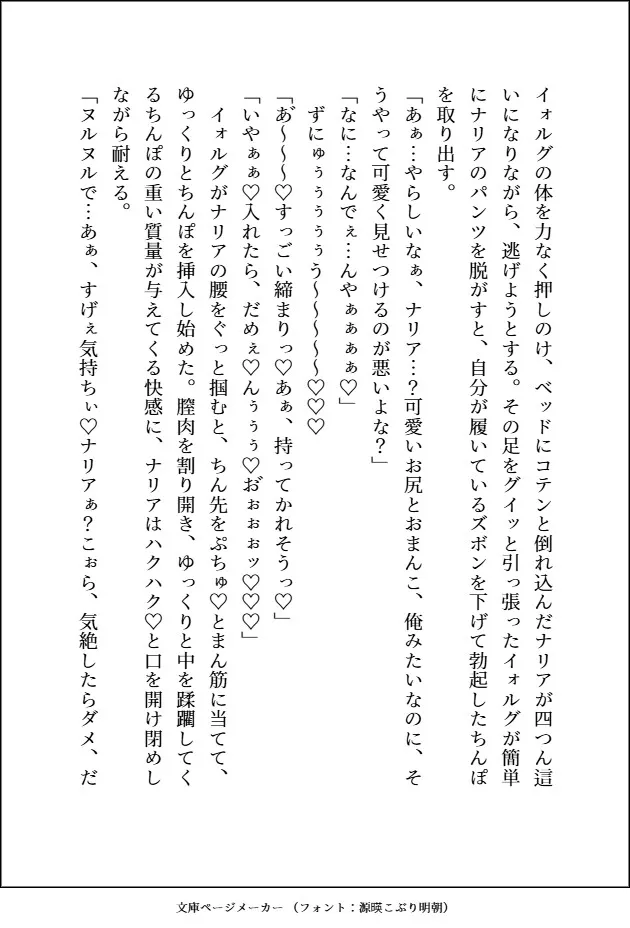 イォルグの体を力なく押しのけ、ベッドにコテンと倒れ込んだナリアが四つん這
いになりながら、逃げようとする。その足をグイッと引っ張ったイォルグが簡単
にナリアのパンツを脱がすと、自分が履いているズボンを下げて勃起したちんぽ
を取り出す。
「あぁ…やらしいなぁ、ナリア…？可愛いお尻とおまんこ、俺みたいなのに、そ
うやって可愛く見せつけるのが悪いよな？」
「なに…なんでぇ…んやぁぁぁぁ♡」
ずにゅぅぅぅぅぅう〜〜〜〜〜♡♡♡
「あ゛〜〜〜♡すっごい締まりっ♡あぁ、持ってかれそうっ♡」
「いやぁぁ♡入れたら、だめぇ♡んぅぅぅ♡お゛ぉぉぉッ♡♡♡」
イォルグがナリアの腰をぐっと掴むと、ちん先をぷちゅ♡とまん筋に当てて、
ゆっくりとちんぽを挿入し始めた。膣肉を割り開き、ゆっくりと中を蹂躙してく
るちんぽの重い質量が与えてくる快感に、ナリアはハクハク♡と口を開け閉めし
ながら耐える。
「ヌルヌルで…あぁ、すげぇ気持ちぃ♡ナリアぁ？こぉら、気絶したらダメ、だ
文庫ページメーカー（フォント：源暎こぶり明朝）